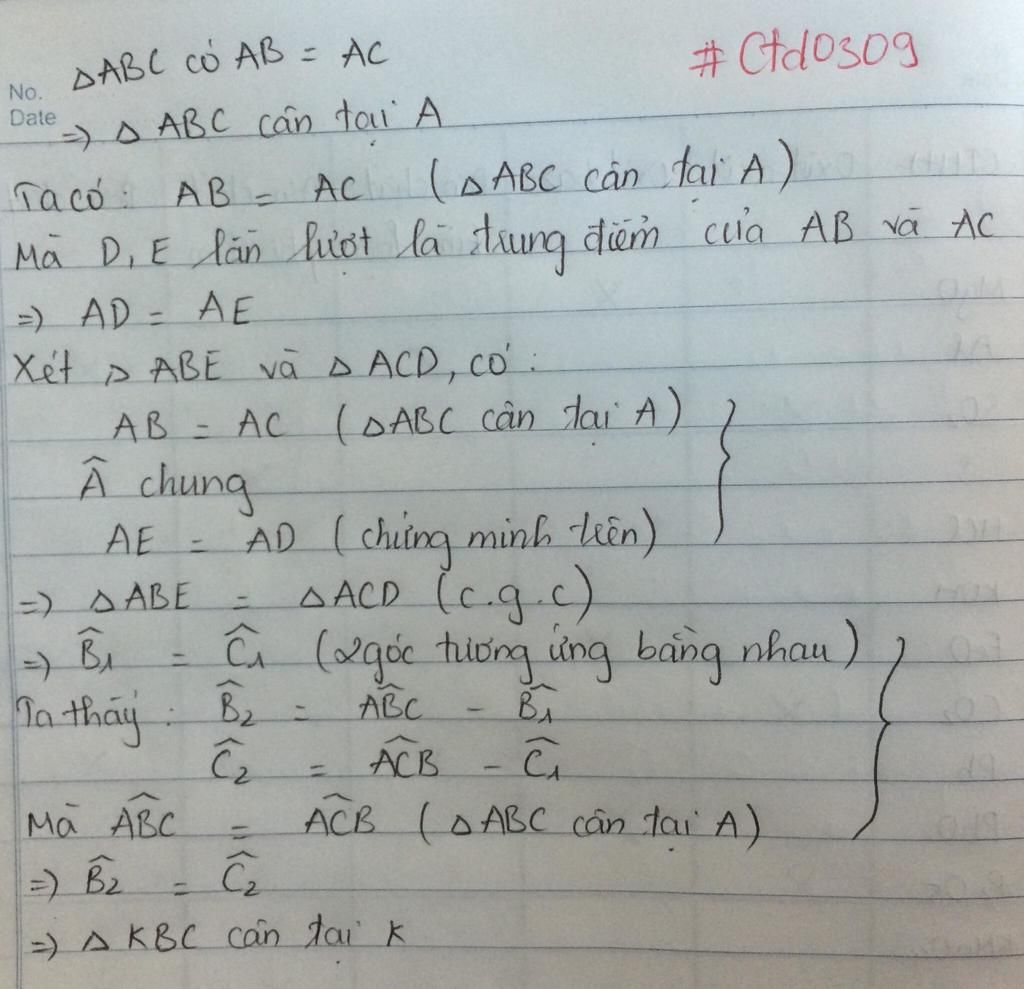 △ABC có AB = AC
#Ctd0309
No.
Date
=> △ ABC cân tại A
Ta có: AB = AC (△ABC cân tại A)
Mà D, E lần lượt là trung điểm của AB và AC
=> AD = AE
Xét △ ABE và △ ACD, có:
AB = AC (△ABC cân tại A)
Â chung
AE = AD (chứng minh trên)
=> △ABE = △ACD (c.g.c)
=> B̂₁ = Ĉ₁ (2 góc tương ứng bằng nhau)
Ta thấy: B̂₂ = AB̂C - B̂₁
Ĉ₂ = AĈB - Ĉ₁
Mà AB̂C = AĈB (△ABC cân tại A)
=> B̂₂ = Ĉ₂
=> △ KBC cân tại K